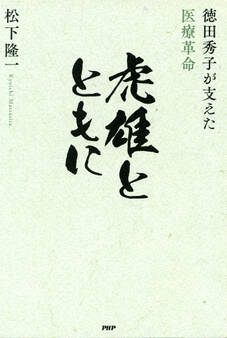 徳田秀子が支えた
医療革命
虎雄と
ともに
松下隆一
Ryuichi Matsushita
PHP